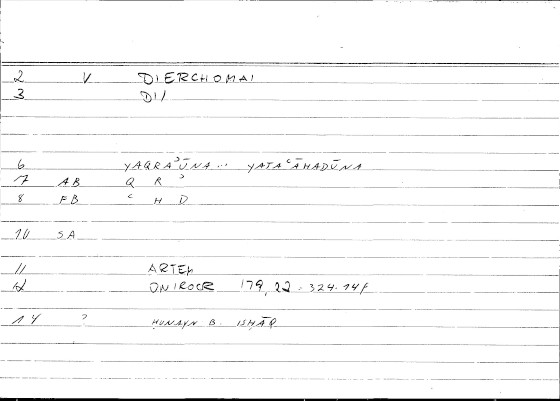 2 V DIERCHOMAI
3 DI/
6 YAQRAʾŪNA ... YATAʿĀHADŪNA
7 AB Q R ʾ
8 FB ʿ H D
10 SA
11 ARTEM
12 ONIROCR 179, 22 - 324.14f
14 ? ḤUNAYN B. ISḤĀQ